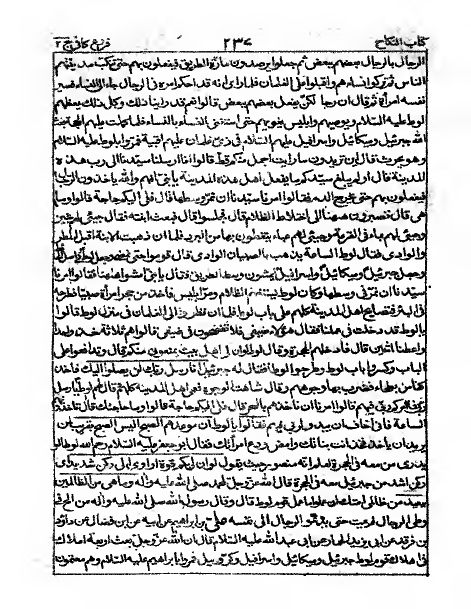 كتاب النكاح ٢٣٧ فروع كافي ج ٢
الرجال بالرجال بعضهم ببعض ثم جعلوا يرصدون مارّة الطريق فيفعلون بهم حتى تنكب مدينتهم
الناس ثم تركوا نساءهم واقبلوا على الغلمان فلما راى انه قد احكم امره في الرجال جاء الى النساء فصير
نفسه امرأة ثم قال ان رجالكن يفعل بعضهم ببعض قالوا نعم قد راينا ذلك وكل ذلك يعظهم
لوط عليه السلام ويوصيهم وابليس يغويهم حتى استغنى النساء بالنساء فلما كملت عليهم الحجة بعث
الله جبرئيل وميكائيل واسرافيل عليهم السلام في زي غلمان عليهم اقبية فمروا بلوط عليه السلام
وهو يحرث فقال اين تريدون ما راينا اجمل منكم قط قالوا انا ارسلنا سيدنا الى رب هذه
المدينة قال اولم يبلغ سيدكم ما يفعل اهل هذه المدينة يا بني انهم والله ياخذون الرجال
فيفعلون بهم حتى يخرج الدم فقالوا امرنا سيدنا ان نمر وسطها قال فلي اليكم حاجة قالوا وما
هي قال تصبرون ههنا الى اختلاط الظلام قال فجلسوا قال فبعث ابنته فقال جيئي لهم بخبز
وجيئي لهم بماء في القرعة وجيئي لهم عباء يتغطون بها من البرد فلما ان ذهبت الابنة اقبل المطر
والوادي فقال لوط الساعة يذهب بالصبيان الوادي قال قوموا حتى نمضي وجعل لوط يمشي في اصل الحائط
وجعل جبرئيل وميكائيل واسرافيل يمشون وسط الطريق فقال يا بني امشوا ههنا فقالوا امرنا
سيدنا ان نمر في وسطها وكان لوط يستغنم الظلام ومر ابليس فاخذ من حجر امرأة صبيا فطرحه
في البئر فتصايح اهل المدينة كلهم على باب لوط فلما ان نظروا الى الغلمان في منزل لوط قالوا
يا لوط قد دخلت في عملنا فقال هؤلاء ضيفي فلا تفضحون في ضيفي قالوا هم ثلاثة خذ واحدا
واعطنا اثنين قال فادخلهم الحجرة وقال لو ان لي اهل بيت يمنعوني منكم قال وتدافعوا على
الباب وكسروا باب لوط وطرحوا لوطا فقال له جبرئيل انا رسل ربك لن يصلوا اليك فاخذ
كفا من بطحاء فضرب بها وجوههم وقال شاهت الوجوه فعمي اهل المدينة كلهم وقال لهم لوط يا رسل
ربي فما امركم ربي فيهم قالوا امرنا ان ناخذهم بالسحر قال فلي اليكم حاجة قالوا وما حاجتك قال تاخذونهم
الساعة فاني اخاف ان يبدو لربي فيهم فقالوا يا لوط ان موعدهم الصبح اليس الصبح بقريب لمن
يريد ان ياخذ فخذ انت بناتك وامض ودع امرأتك فقال ابو جعفر عليه السلام رحم الله لوطا لو
يدري من معه في الحجرة لعلم انه منصور حيث يقول لو ان لي بكم قوة او اوي الى ركن شديد اي
ركن اشد من جبرئيل معه في الحجرة فقال الله عز وجل لمحمد صلى الله عليه واله وما هي من الظالمين
ببعيد من ظالمي امتك ان عملوا ما عمل قوم لوط قال وقال رسول الله صلى الله عليه واله من الح في
وطي الرجال لم يمت حتى يدعو الرجال الى نفسه علي بن ابراهيم عن ابيه عن ابن فضال عن داود
بن فرقد عن ابي يزيد الحمار عن ابي عبد الله عليه السلام قال ان الله عز وجل بعث اربعة املاك
في اهلاك قوم لوط جبرئيل وميكائيل واسرافيل وكروبيل فمروا بابراهيم عليه السلام وهم معتمون